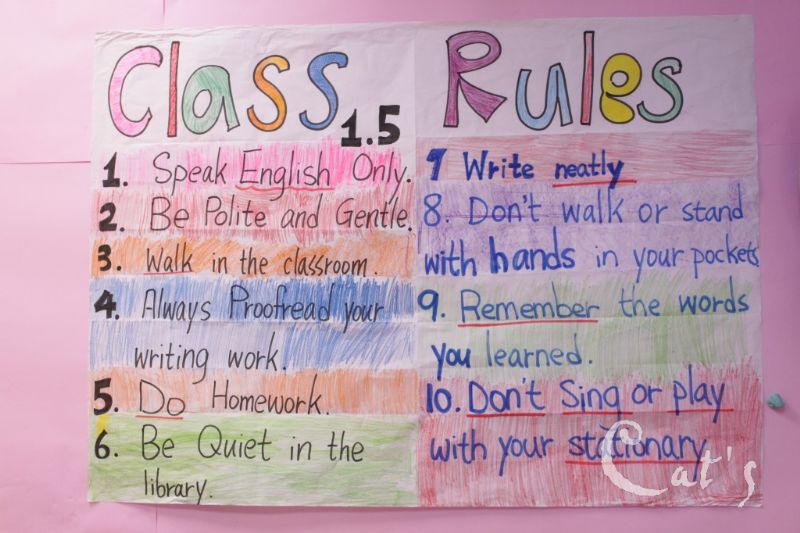 Class Rules
1.5
1. Speak English Only.
2. Be Polite and Gentle.
3. Walk in the classroom.
4. Always Proofread your
writing work.
5. Do Homework.
6. Be Quiet in the
library.
7 Write neatly
8. Don't walk or stand
with hands in your pockets
9. Remember the words
you learned.
10. Don't Sing or play
with your stationary.
Cat's